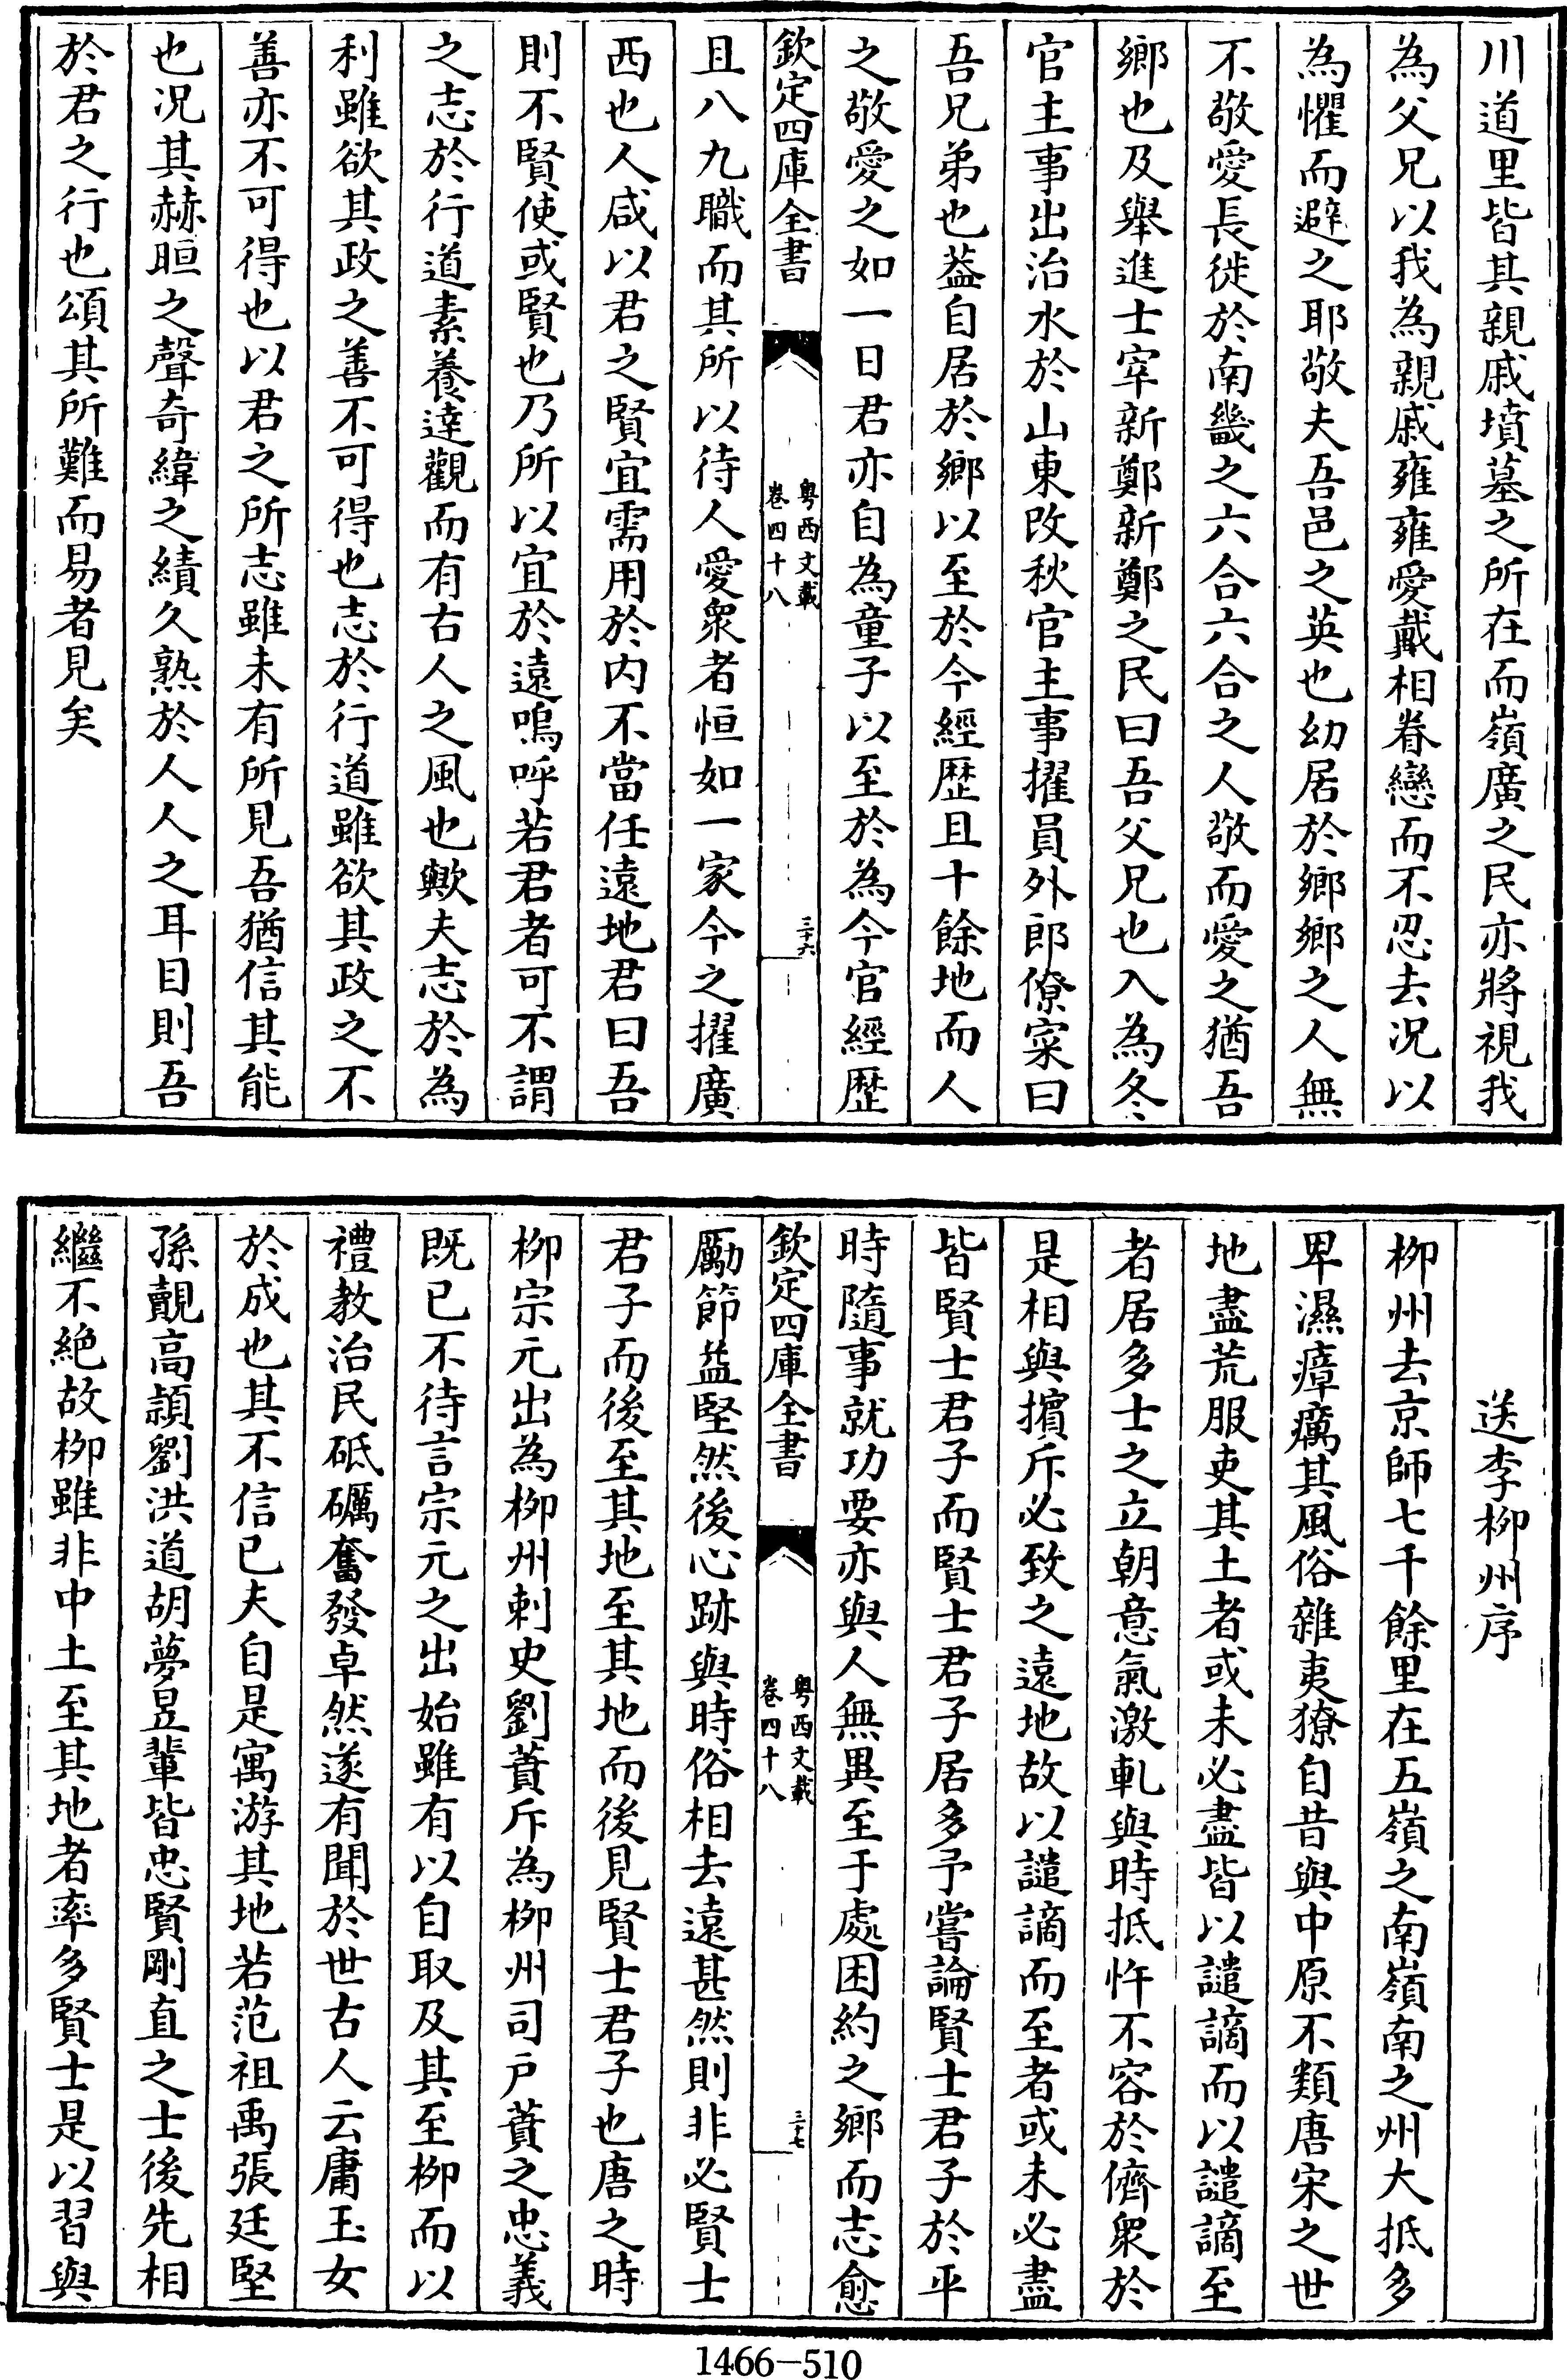 川道里皆其親戚墳墓之所在而嶺廣之民亦將視我
為父兄以我為親戚雍雍愛戴相眷戀而不忍去况以
為懼而避之耶敬夫吾邑之英也幼居於鄉鄉之人無
不敬愛長徙於南畿之六合六合之人敬而愛之猶吾
鄉也及舉進士宰新鄭新鄭之民曰吾父兄也入為冬
官主事出治水於山東改秋官主事擢員外郎僚寀曰
吾兄弟也葢自居於鄉以至於今經歴且十餘地而人
之敬愛之如一日君亦自為童子以至於為今官經歴
欽定四庫全書
粤西文載
卷四十八
三十六
且八九職而其所以待人愛衆者恒如一家今之擢廣
西也人咸以君之賢宜需用於内不當任遠地君曰吾
則不賢使或賢也乃所以宜於遠嗚呼若君者可不謂
之志於行道素養達觀而有古人之風也歟夫志於為
利雖欲其政之善不可得也志於行道雖欲其政之不
善亦不可得也以君之所志雖未有所見吾猶信其能
也况其赫晅之聲奇緯之績久熟於人人之耳目則吾
於君之行也頌其所難而易者見矣
送李栁州序
栁州去京師七千餘里在五嶺之南嶺南之州大抵多
卑濕瘴癘其風俗雜夷獠自昔與中原不類唐宋之世
地盡荒服吏其土者或未必盡皆以譴謫而以譴謫至
者居多士之立朝意氣激軋與時抵忤不容於儕衆於
是相與擯斥必致之遠地故以譴謫而至者或未必盡
皆賢士君子而賢士君子居多予嘗論賢士君子於平
時隨事就功要亦與人無異至于處困約之鄉而志愈
欽定四庫全書
粤西文載
卷四十八
三十七
勵節益堅然後心跡與時俗相去遠甚然則非必賢士
君子而後至其地至其地而後見賢士君子也唐之時
栁宗元出為栁州刺史劉蕡斥為栁州司户蕡之忠義
既已不待言宗元之出始雖有以自取及其至栁而以
禮教治民砥礪奮發卓然遂有聞於世古人云庸玉女
於成也其不信已夫自是寓游其地若范祖禹張廷堅
孫覿高頴劉洪道胡夢昱輩皆忠賢剛直之士後先相
繼不絶故栁雖非中土至其地者率多賢士是以習與
1466-510